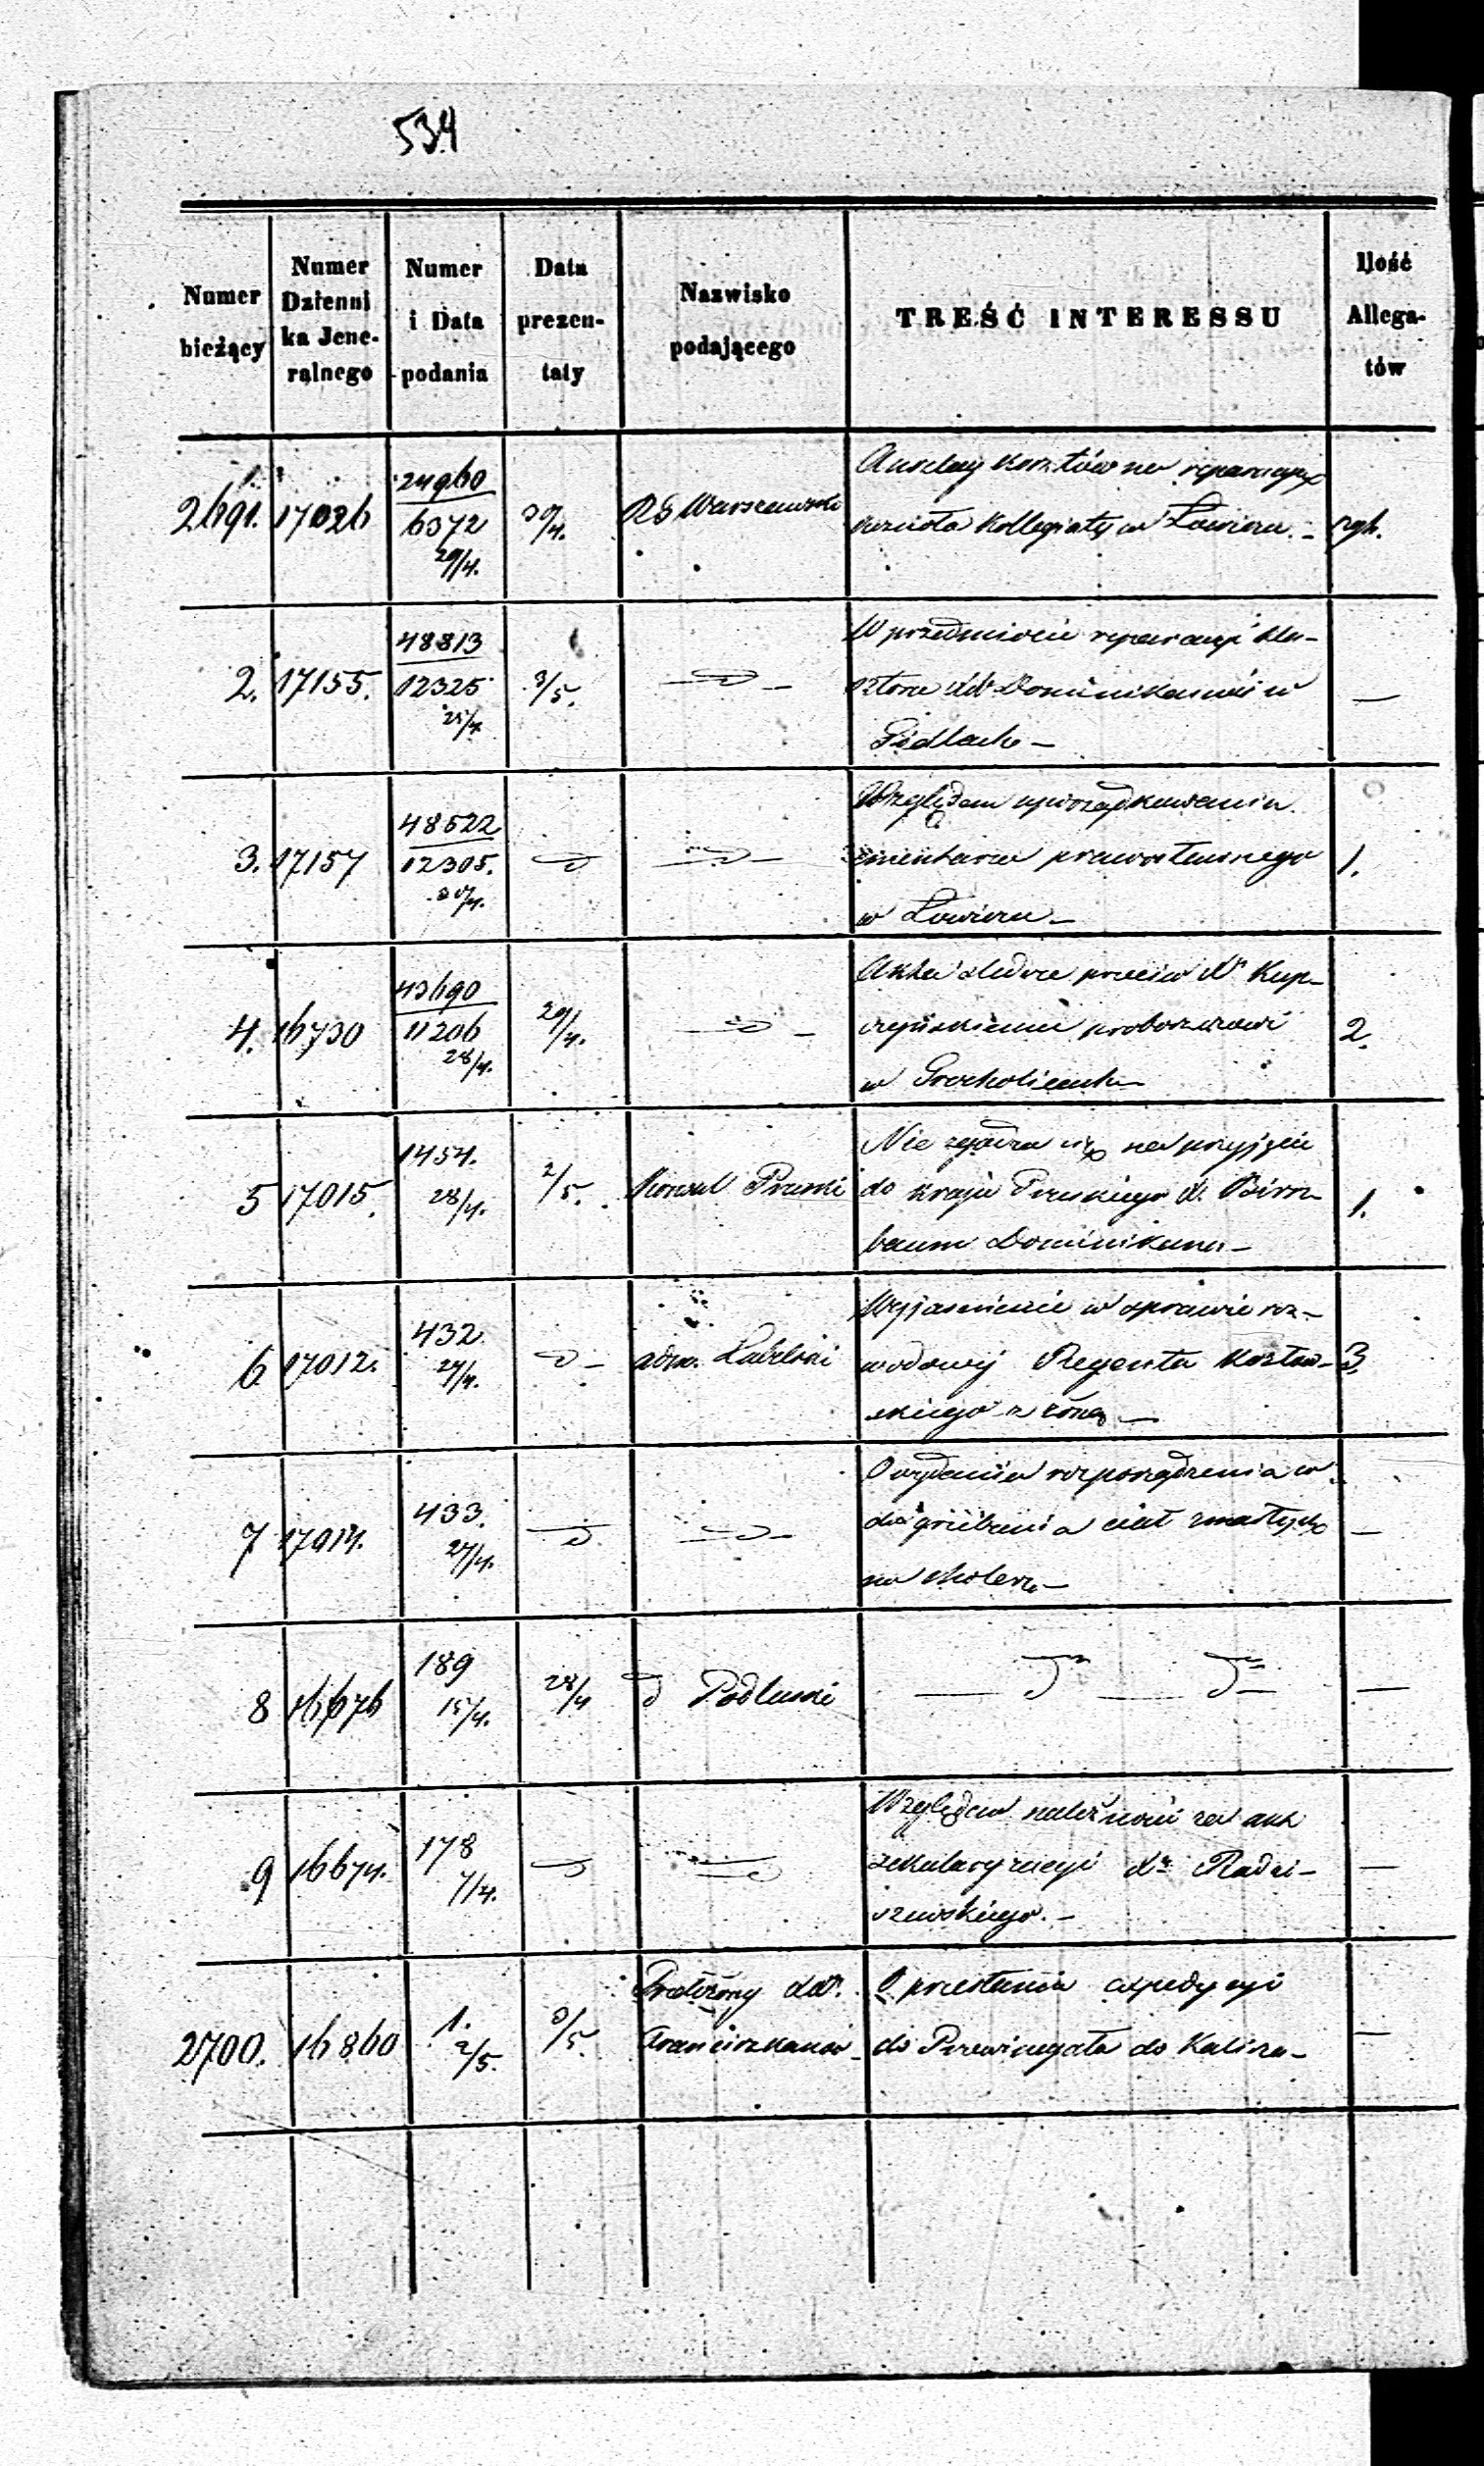 534
Numer bieżący
Numer Dzienni ka Jene- ralnego
Numer i Data podania
Data prezen- taty
Nazwisko podającego
TREŚĆ INTERESSU
Ilość Allega- tów
2691. 17026 24960 6372 29/4. 30/4. RG Warszawski
kosztów na reparacyę
kościoła Kollegiaty w Łowiczu.
2. 17155. 48813 12325 3/5.
W przedmiocie reparacyi kla-
sztoru dd Dominikanów w
Gidlach —
3. 17157 48522 12305. 30/4. 1.
Względem uporządkowania
cmentarza prawosławnego
w Łowiczu —
4. 16730 43690 11206 28/4. 29/4. 2.
Akta śledcze przeciw Xs Kup-
czyńskiemu proboszczowi
w
5 17015. 1454. 28/4. 2/5. Konsul Pruski 1.
Nie zgadza się na przyjęcie
do kraju Pruskiego X. Birn-
baum Dominikana —
6 17012. 432. 27/4. adm. Lubelski 3.
Wyjaśnienie w sprawie roz-
wodowej Regenta Kozłow-
skiego z żoną —
7 17014. 433. 27/4.
O wydanie rozporządzenia co
do grzebania ciał zmarłych
na cholerę —
8 16676 189 15/4. 28/4 d Podlaski
9 16674. 178 7/4.
Względem należności za akt
sekularyzacyi Xa Radzi-
szewskiego. —
2700. 16860 1. 2/5. 3/5.
Przełożony dd.
Franciszkanów —
O przesłanie expedycyi
do Prowincyała do Kalisza —